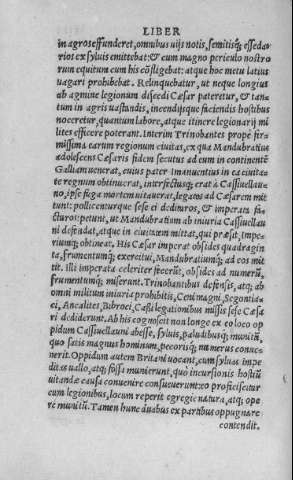 LIBER
in agros effunderet, omnibus uijs notis, semitisq́; esseda
rios ex syluis emittebat: & cum magno periculo nostro
rum equitum cum his cõfligebat: atque hoc metu latius
uagari prohibebat. Relinquebatur, ut neque longius
ab agmine legionum discedi Cæsar pateretur, & tan=
tum in agris uastandis, incendijsque faciendis hostibus
noceretur, quantum labore, atque itinere legionarij mi
lites efficere poterant. Interim Trinobantes propè fir=
missima earum regionum ciuitas, ex qua Mandubratius
adolescens Cæsaris fidem secutus ad eum in continentē
Galliam uenerat, cuius pater Imanuentius in ea ciuita=
te regnum obtinuerat, interfectusq́; erat à Cassiuellau=
no, ipse fuga mortem uitauerat, legatos ad Cæsarem mit
tunt: pollicenturque sese ei dedituros, & imperata fa=
cturos: petunt, ut Mandubratium ab iniuria Cassiuellau
ni defendat, atque in ciuitatem mittat, qui præsit, impe=
riumq́; obtineat. His Cæsar imperat obsides quadragin
ta, frumentumq́; exercitui, Mandubratiumq́; ad eos mit
tit. Illi imperata celeriter fecerũt, obsides ad numerũ,
frumentumq́; miserunt. Trinobantibus defensis, atq; ab
omni militum iniuria prohibitis, Cenimagni, Segontia=
ci, Ancalites, Bibroci, Cassi legationibus missis sese Cæsa
ri dediderunt. Ab his cognoscit non longe ex eo loco op
pidum Cassiuellauni abesse, syluis, paludibusq́; munitũ,
quo satis magnus hominum, pecorisq́; numerus conue=
nerit. Oppidum autem Britani uocant, cum syluas impe
ditas uallo, atq; fossa munierunt, quò incursionis hostiũ
uitandæ causa conuenire consueuerunt: eò proficiscitur
cum legionibus, locum reperit egregie natura, atq; ope=
re munitũ. Tamen hunc duabus ex partibus oppugnare
contendit.